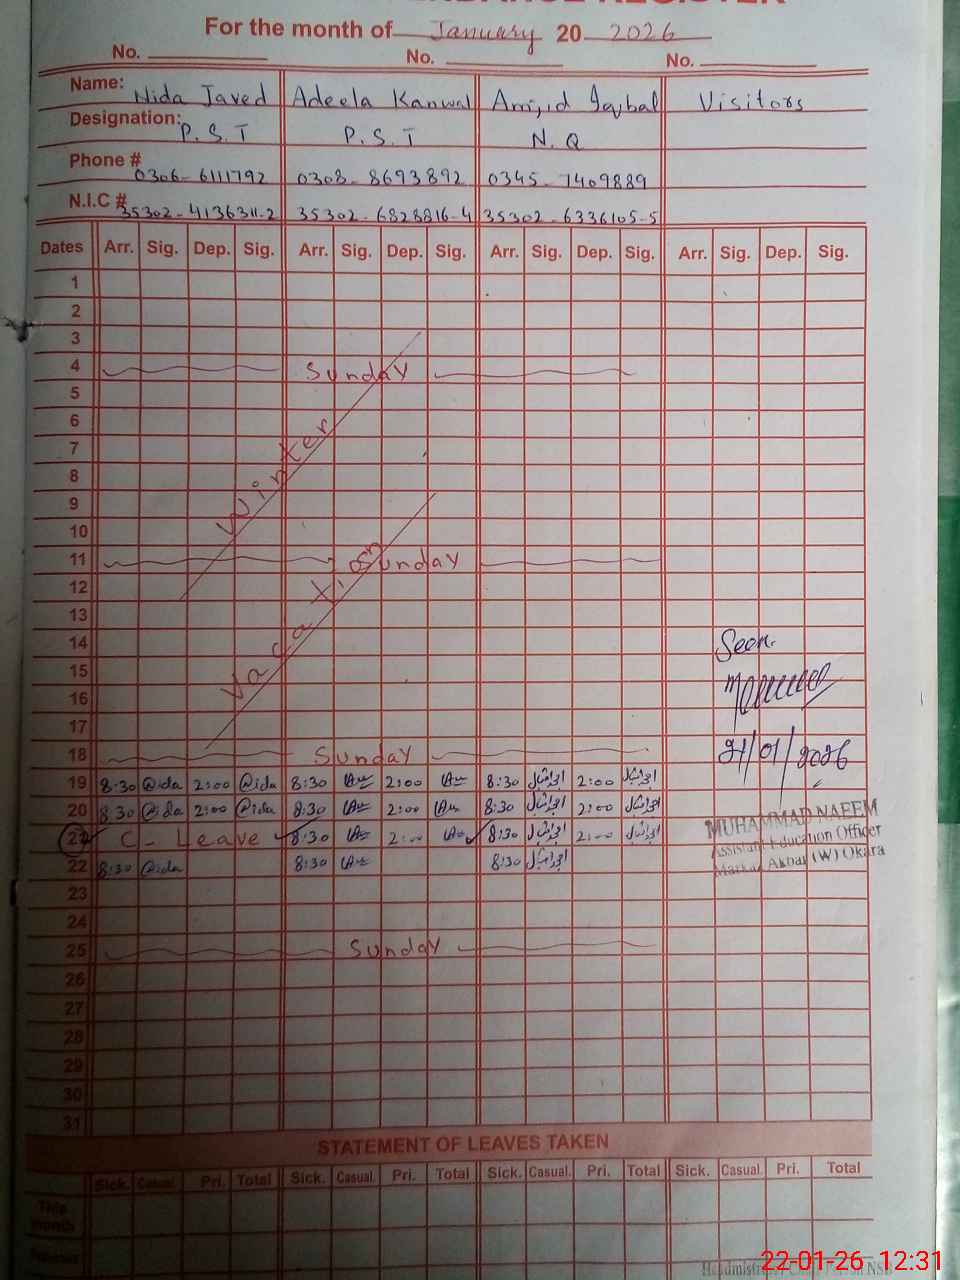 For the month of January 20 2026
No. No. No.
Name: Nida Javed Adeela Kanwal Amjid Iqbal Visitors
Designation: P.S.T P.S.T N.Q
Phone # 0306-6111792 0308-8693892 0345-7409889
N.I.C # 35302-4136311-2 35302-6828816-4 35302-6336105-5
Dates Arr. Sig. Dep. Sig. Arr. Sig. Dep. Sig. Arr. Sig. Dep. Sig. Arr. Sig. Dep. Sig.
1
2
3
4 Sunday
5
6
7
8
Winter
9
10
11 Sunday
12
13
14 Seen
15
Vacation
16
17
18 Sunday 21/01/2026
19 8:30 2:00 8:30 2:00 8:30 2:00
20 8:30 2:00 8:30 2:00 8:30 2:00
21 C- Leave 8:30 2:00 8:30 2:00
22 8:30 8:30 8:30
MUHAMMAD NAEEM
Assistant Education Officer
(W) Okara
23
24
25 Sunday
26
27
28
29
30
31
STATEMENT OF LEAVES TAKEN
Sick. Casual. Pri. Total Sick. Casual. Pri. Total Sick. Casual. Pri. Total Sick. Casual. Pri. Total
This
month
22-01-26 12:31